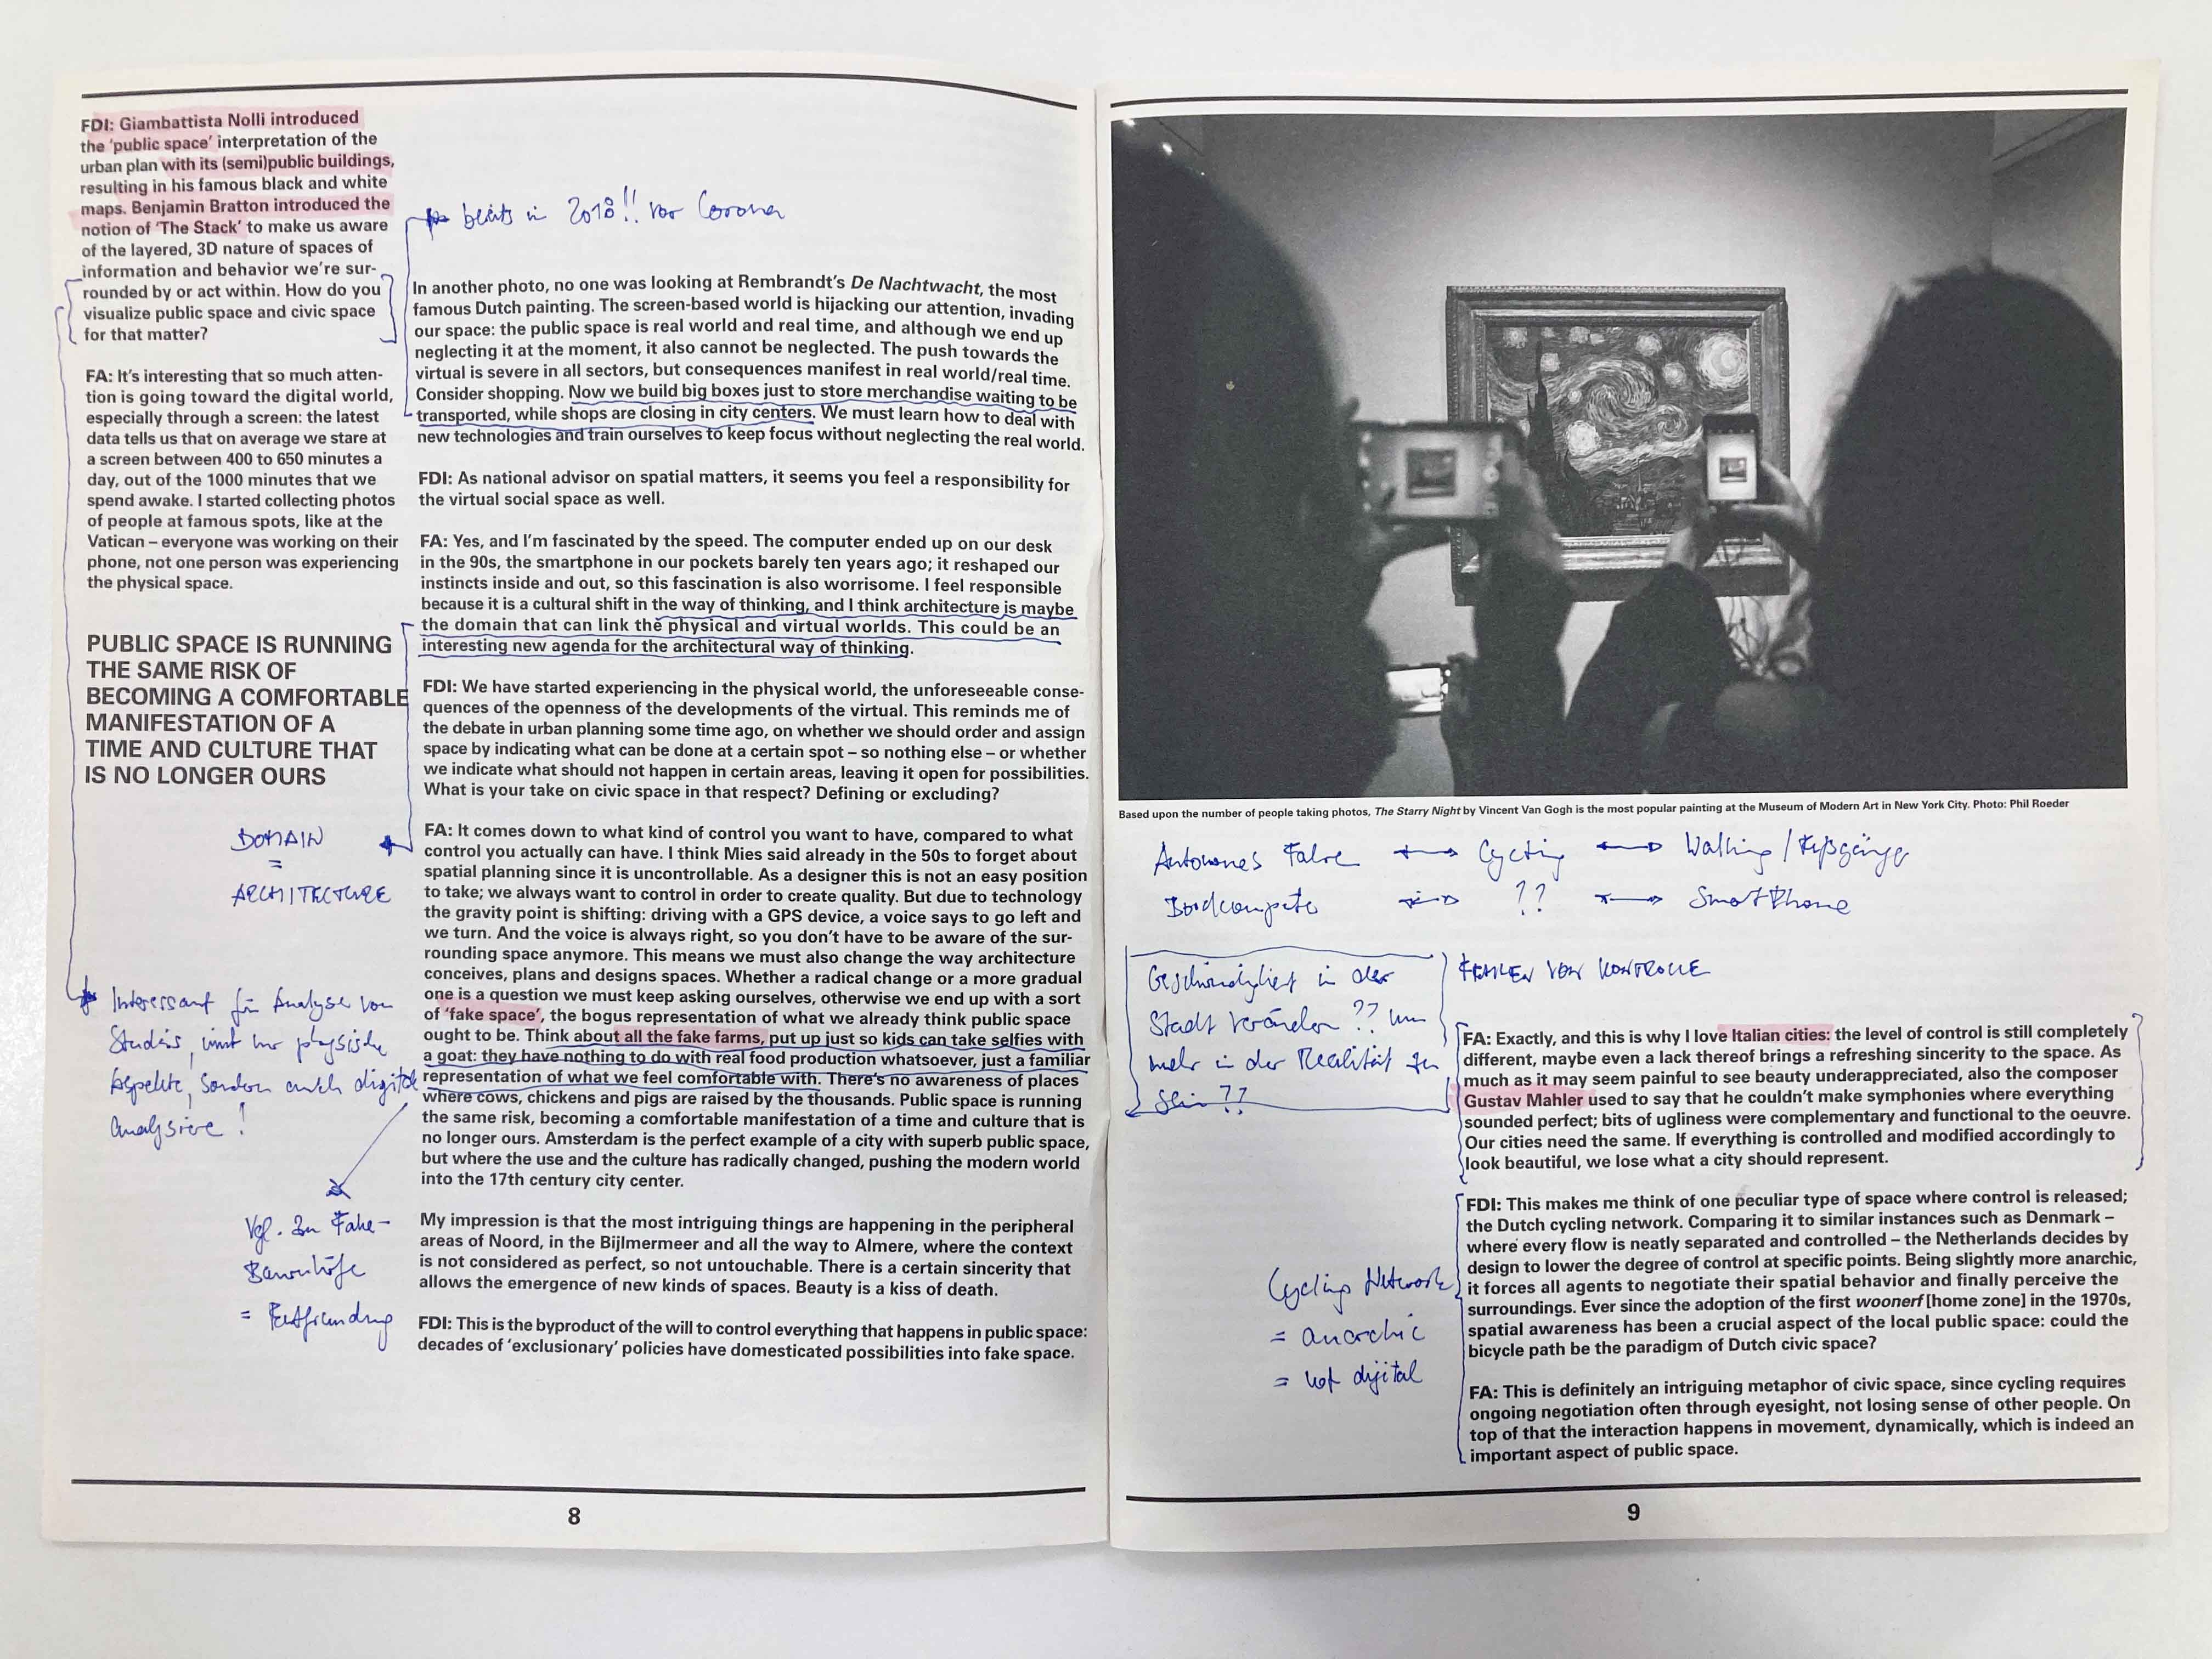 FDI: Giambattista Nolli introduced
the ‘public space’ interpretation of the
urban plan with its (semi)public buildings,
resulting in his famous black and white
maps. Benjamin Bratton introduced the
notion of ‘The Stack’ to make us aware
of the layered, 3D nature of spaces of
information and behavior we’re sur-
rounded by or act within. How do you
visualize public space and civic space
for that matter?
FA: It’s interesting that so much atten-
tion is going toward the digital world,
especially through a screen: the latest
data tells us that on average we stare at
a screen between 400 to 650 minutes a
day, out of the 1000 minutes that we
spend awake. I started collecting photos
of people at famous spots, like at the
Vatican – everyone was working on their
phone, not one person was experiencing
the physical space.
PUBLIC SPACE IS RUNNING
THE SAME RISK OF
BECOMING A COMFORTABLE
MANIFESTATION OF A
TIME AND CULTURE THAT
IS NO LONGER OURS
DOMAIN
=
ARCHITECTURE
Interessant für Analyse von
Studios, nicht nur physische
Aspekte, sondern auch digitale
Analysiere!
Vgl. zu Fake-
Bauernhöfe
= Entfremdung
bereits in 2018!! vor Corona
In another photo, no one was looking at Rembrandt’s De Nachtwacht, the most
famous Dutch painting. The screen-based world is hijacking our attention, invading
our space: the public space is real world and real time, and although we end up
neglecting it at the moment, it also cannot be neglected. The push towards the
virtual is severe in all sectors, but consequences manifest in real world/real time.
Consider shopping. Now we build big boxes just to store merchandise waiting to be
transported, while shops are closing in city centers. We must learn how to deal with
new technologies and train ourselves to keep focus without neglecting the real world.
FDI: As national advisor on spatial matters, it seems you feel a responsibility for
the virtual social space as well.
FA: Yes, and I’m fascinated by the speed. The computer ended up on our desk
in the 90s, the smartphone in our pockets barely ten years ago; it reshaped our
instincts inside and out, so this fascination is also worrisome. I feel responsible
because it is a cultural shift in the way of thinking, and I think architecture is maybe
the domain that can link the physical and virtual worlds. This could be an
interesting new agenda for the architectural way of thinking.
FDI: We have started experiencing in the physical world, the unforeseeable conse-
quences of the openness of the developments of the virtual. This reminds me of
the debate in urban planning some time ago, on whether we should order and assign
space by indicating what can be done at a certain spot – so nothing else – or whether
we indicate what should not happen in certain areas, leaving it open for possibilities.
What is your take on civic space in that respect? Defining or excluding?
FA: It comes down to what kind of control you want to have, compared to what
control you actually can have. I think Mies said already in the 50s to forget about
spatial planning since it is uncontrollable. As a designer this is not an easy position
to take; we always want to control in order to create quality. But due to technology
the gravity point is shifting: driving with a GPS device, a voice says to go left and
we turn. And the voice is always right, so you don’t have to be aware of the sur-
rounding space anymore. This means we must also change the way architecture
conceives, plans and designs spaces. Whether a radical change or a more gradual
one is a question we must keep asking ourselves, otherwise we end up with a sort
of ‘fake space’, the bogus representation of what we already think public space
ought to be. Think about all the fake farms, put up just so kids can take selfies with
a goat: they have nothing to do with real food production whatsoever, just a familiar
representation of what we feel comfortable with. There’s no awareness of places
where cows, chickens and pigs are raised by the thousands. Public space is running
the same risk, becoming a comfortable manifestation of a time and culture that is
no longer ours. Amsterdam is the perfect example of a city with superb public space,
but where the use and the culture has radically changed, pushing the modern world
into the 17th century city center.
My impression is that the most intriguing things are happening in the peripheral
areas of Noord, in the Bijlmermeer and all the way to Almere, where the context
is not considered as perfect, so not untouchable. There is a certain sincerity that
allows the emergence of new kinds of spaces. Beauty is a kiss of death.
FDI: This is the byproduct of the will to control everything that happens in public space:
decades of ‘exclusionary’ policies have domesticated possibilities into fake space.
8
Based upon the number of people taking photos, The Starry Night by Vincent Van Gogh is the most popular painting at the Museum of Modern Art in New York City. Photo: Phil Roeder
Autonomes Fahren ⟷ Cycling ⟷ Walking / Fußgänger
Bordcomputer ⟷ ?? ⟷ Smart Phone
Geschwindigkeit in der
Stadt verändern ?? um
mehr in der Realität zu
sein ??
FEHLEN VON KONTROLLE
FA: Exactly, and this is why I love Italian cities: the level of control is still completely
different, maybe even a lack thereof brings a refreshing sincerity to the space. As
much as it may seem painful to see beauty underappreciated, also the composer
Gustav Mahler used to say that he couldn’t make symphonies where everything
sounded perfect; bits of ugliness were complementary and functional to the oeuvre.
Our cities need the same. If everything is controlled and modified accordingly to
look beautiful, we lose what a city should represent.
FDI: This makes me think of one peculiar type of space where control is released;
the Dutch cycling network. Comparing it to similar instances such as Denmark –
where every flow is neatly separated and controlled – the Netherlands decides by
design to lower the degree of control at specific points. Being slightly more anarchic,
it forces all agents to negotiate their spatial behavior and finally perceive the
surroundings. Ever since the adoption of the first woonerf [home zone] in the 1970s,
spatial awareness has been a crucial aspect of the local public space: could the
bicycle path be the paradigm of Dutch civic space?
Cycling Network
= anarchic
= not digital
FA: This is definitely an intriguing metaphor of civic space, since cycling requires
ongoing negotiation often through eyesight, not losing sense of other people. On
top of that the interaction happens in movement, dynamically, which is indeed an
important aspect of public space.
9